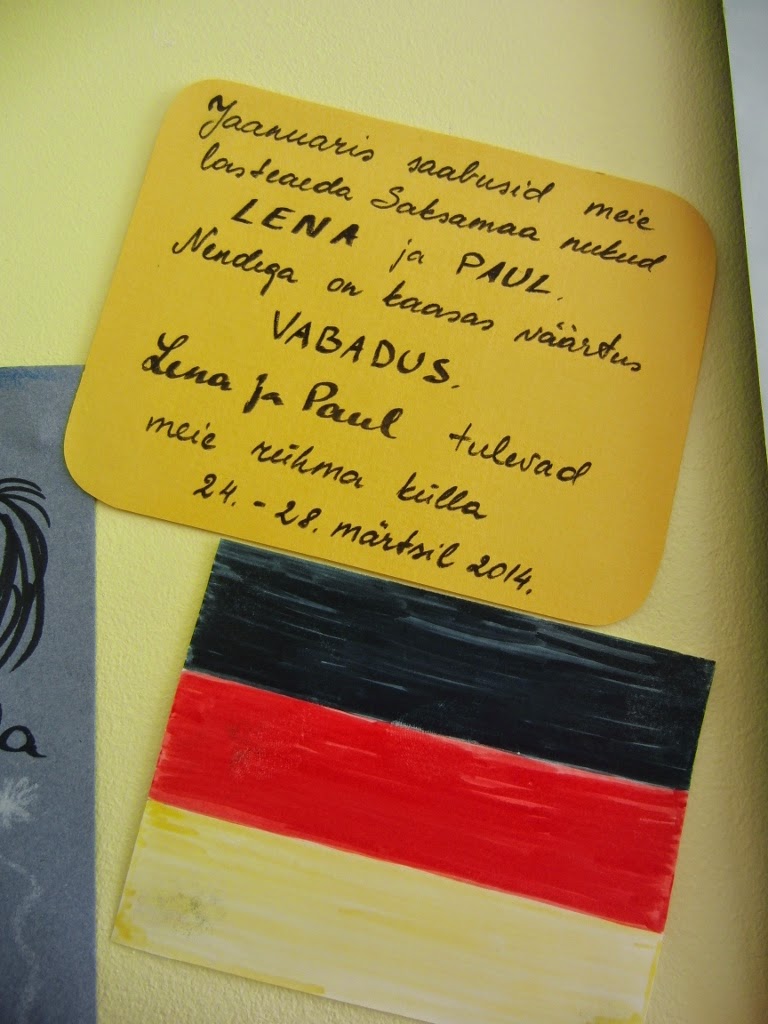 Jaanuaris saabusid meie
lasteaeda Saksamaa nukud
LENA ja PAUL.
Nendega on kaasas väärtus
VABADUS.
Lena ja Paul tulevad
meie rühma külla
24. - 28. märtsil 2014.